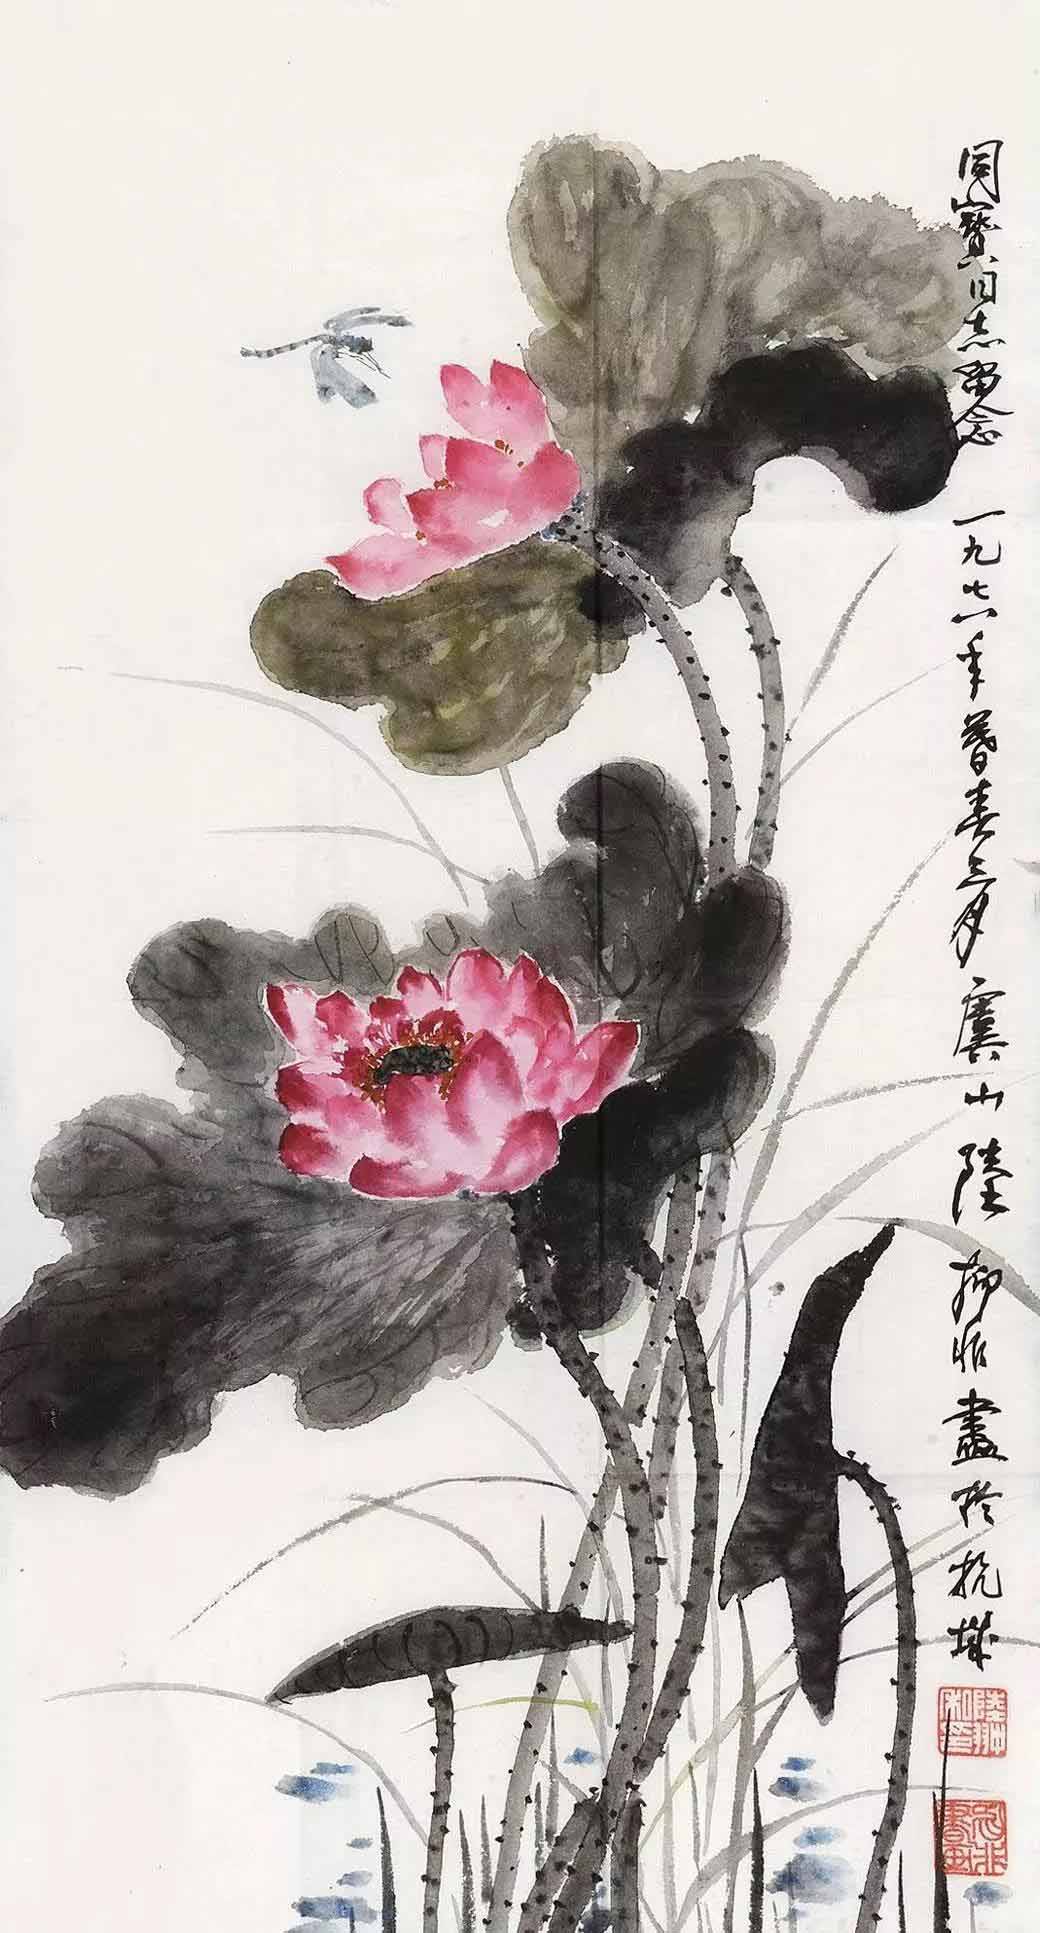 同寶同志留念 一九七六年暮春三月 虞山陸抑非畫於杭城
陸翀私印